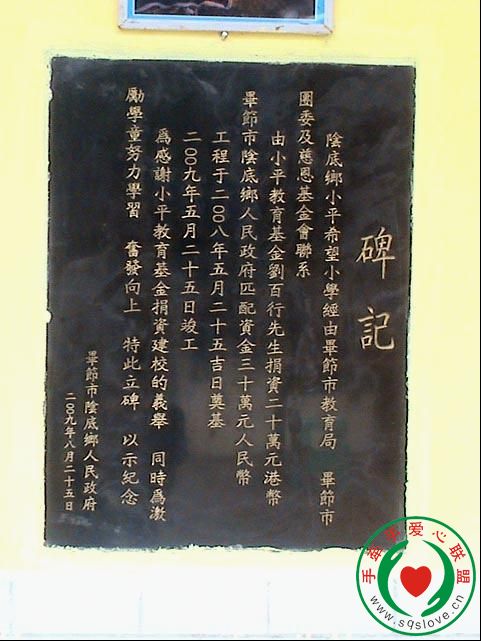 碑記
陰底鄉小平希望小學經由畢節市教育局 畢節市
團委及慈恩基金會聯系
由小平教育基金劉百行先生捐資二十萬元港幣
畢節市陰底鄉人民政府匹配資金三十萬元人民幣
工程于二00八年五月二十五吉日奠基
二00九年五月二十五日竣工
爲感謝小平教育基金捐資建校的義舉 同時爲激
勵學童努力學習 奮發向上 特此立碑 以示紀念
畢節市陰底鄉人民政府
二00九年八月二十五日
手 愛心聯盟
www.sqslove.cn